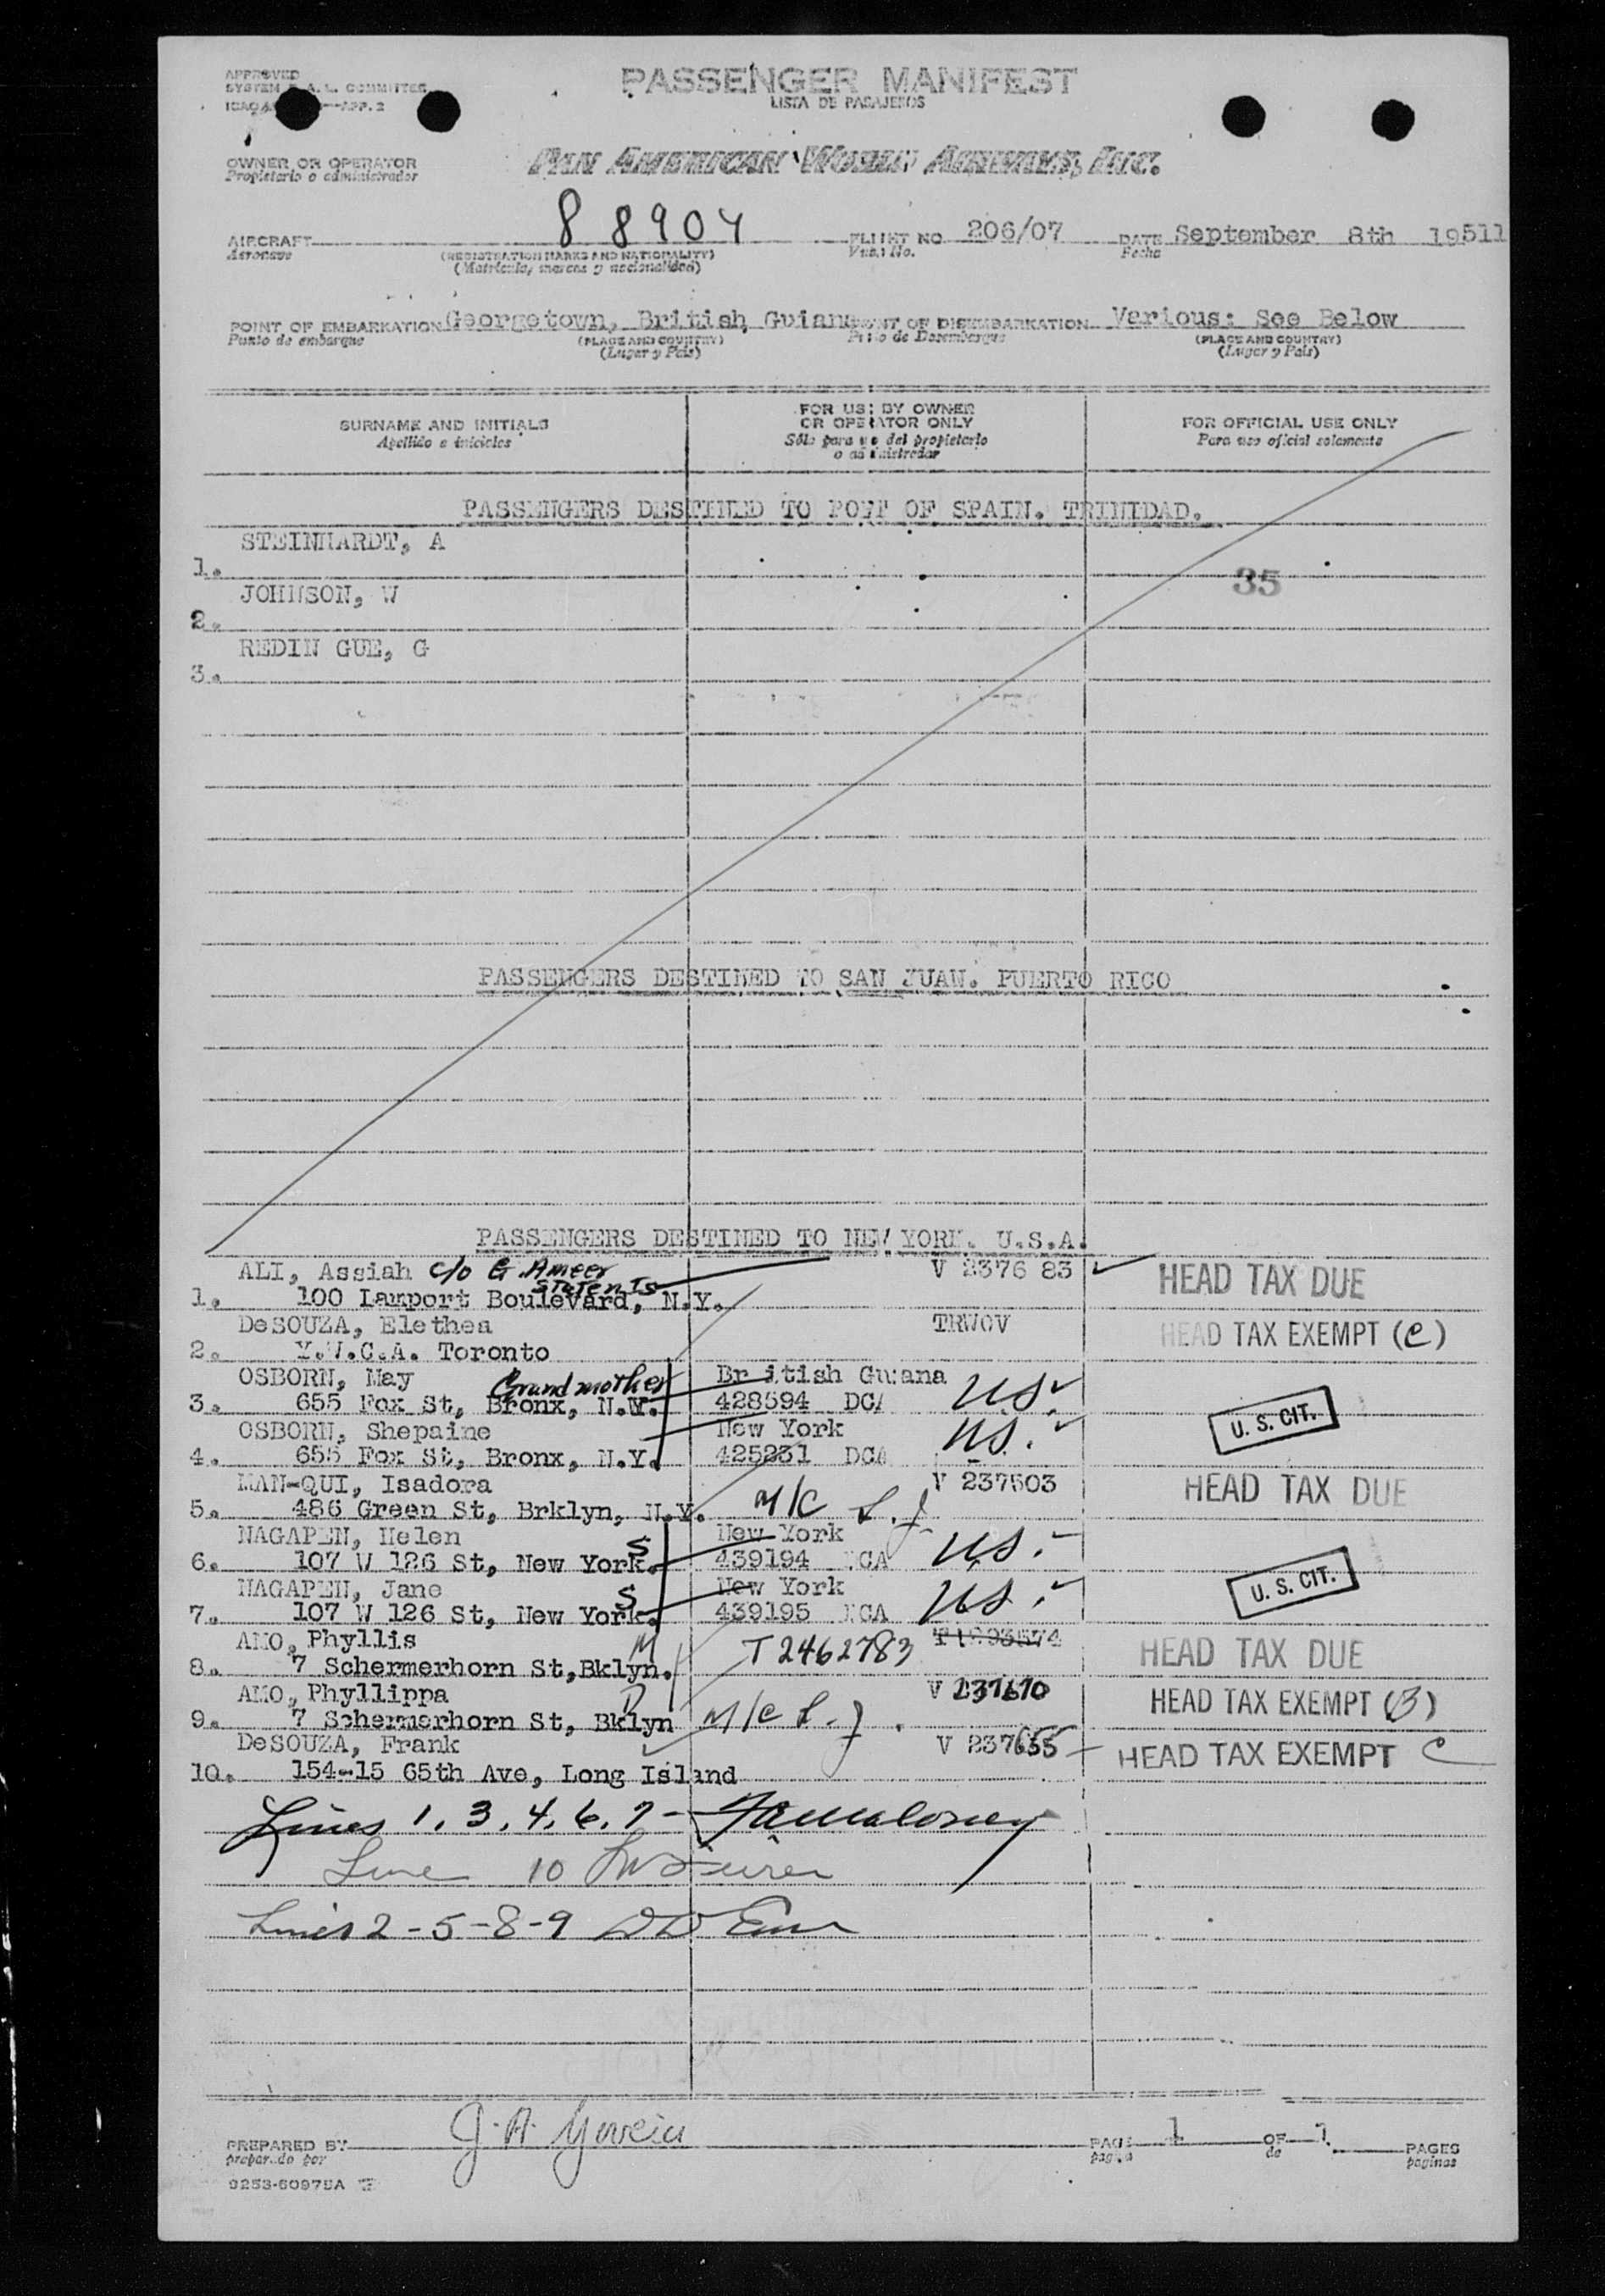 APPROVED
PASSENGER MANIFEST
LISTA DE PASAJEROS
OWNER OR OPERATOR
Propietario o administrador
PAN AMERICAN WORLD AIRWAYS, INC.
AIRCRAFT 88904 FLIGHT NO 206/07 DATE September 8th 1951
Aeronave (REGISTRATION MARKS AND NATIONALITY) Fecha
(Matricula, marcas y nacionalidad)
POINT OF EMBARKATION Georgetown, British Guiana POINT OF DISEMBARKATION Various: See Below
Punto de embarque (PLACE AND COUNTRY) Punto de Desembarque (PLACE AND COUNTRY)
(Lugar y Pais) (Lugar y Pais)
SURNAME AND INITIALS FOR USE BY OWNER OR OPERATOR ONLY FOR OFFICIAL USE ONLY
Apellido e iniciales Sólo para uso del propietario o administrador Para uso oficial solamente
PASSENGERS DESTINED TO PORT OF SPAIN. TRINIDAD.
STEINHARDT, A
1. 35
JOHNSON, W
2.
REDIN GUE, G
3.
PASSENGERS DESTINED TO SAN JUAN. PUERTO RICO
PASSENGERS DESTINED TO NEW YORK. U.S.A.
ALI, Assiah c/o G. Ameer V 2376 83 HEAD TAX DUE
Staten Is
1. 100 Lamport Boulevard, N.Y.
DeSOUZA, Elethea TRWOV HEAD TAX EXEMPT (C)
2. Y.W.C.A. Toronto
OSBORN, May Grandmother British Guiana US.
3. 655 Fox St, Bronx, N.Y. 428594 DCA U. S. CIT.
OSBORN, Shepaine New York US.
4. 655 Fox St, Bronx, N.Y. 425231 DCA
MAN-QUI, Isadora V 237503 HEAD TAX DUE
5. 486 Green St, Brklyn, N.Y. M/C L.J
NAGAPEN, Helen S New York US.
6. 107 W 126 St, New York. 439194 DCA U. S. CIT.
NAGAPEN, Jane S New York US.
7. 107 W 126 St, New York. 439195 DCA
AMO, Phyllis M T2462783 HEAD TAX DUE
8. 7 Schermerhorn St, Bklyn.
AMO, Phyllippa D V 237670 HEAD TAX EXEMPT (B)
9. 7 Schermerhorn St, Bklyn M/C L.J.
DeSOUZA, Frank V 237655 HEAD TAX EXEMPT C
10. 154-15 65th Ave, Long Island
Lines 1, 3, 4, 6, 7 -
Line 10
Lines 2-5-8-9
PREPARED BY G. A. PAGE 1 OF 1 PAGES
preparado por pagina de paginas
9253-60975A